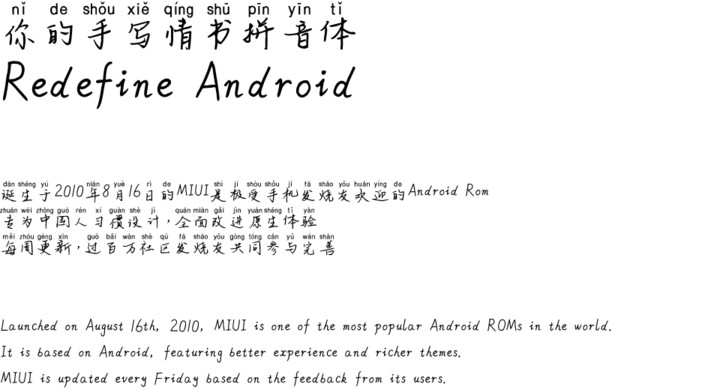 nǐ de shǒu xiě qíng shū pīn yīn tǐ
你的手写情书拼音体
Redefine Android
dàn shēng yú nián yuè rì de shì jí shòu shǒu jī fā shāo yǒu huān yíng de
诞生于2010年8月16日的MIUI是极受手机发烧友欢迎的Android Rom
zhuān wéi zhōng guó rén xí guàn shè jì quán miàn gǎi jìn yuán shēng tǐ yàn
专为中国人习惯设计,全面改进原生体验
měi zhōu gēng xīn guò bǎi wàn shè qū fā shāo yǒu gòng tóng cān yǔ wán shàn
每周更新,过百万社区发烧友共同参与完善
Launched on August 16th, 2010, MIUI is one of the most popular Android ROMs in the world.
It is based on Android, featuring better experience and richer themes.
MIUI is updated every Friday based on the feedback from its users.